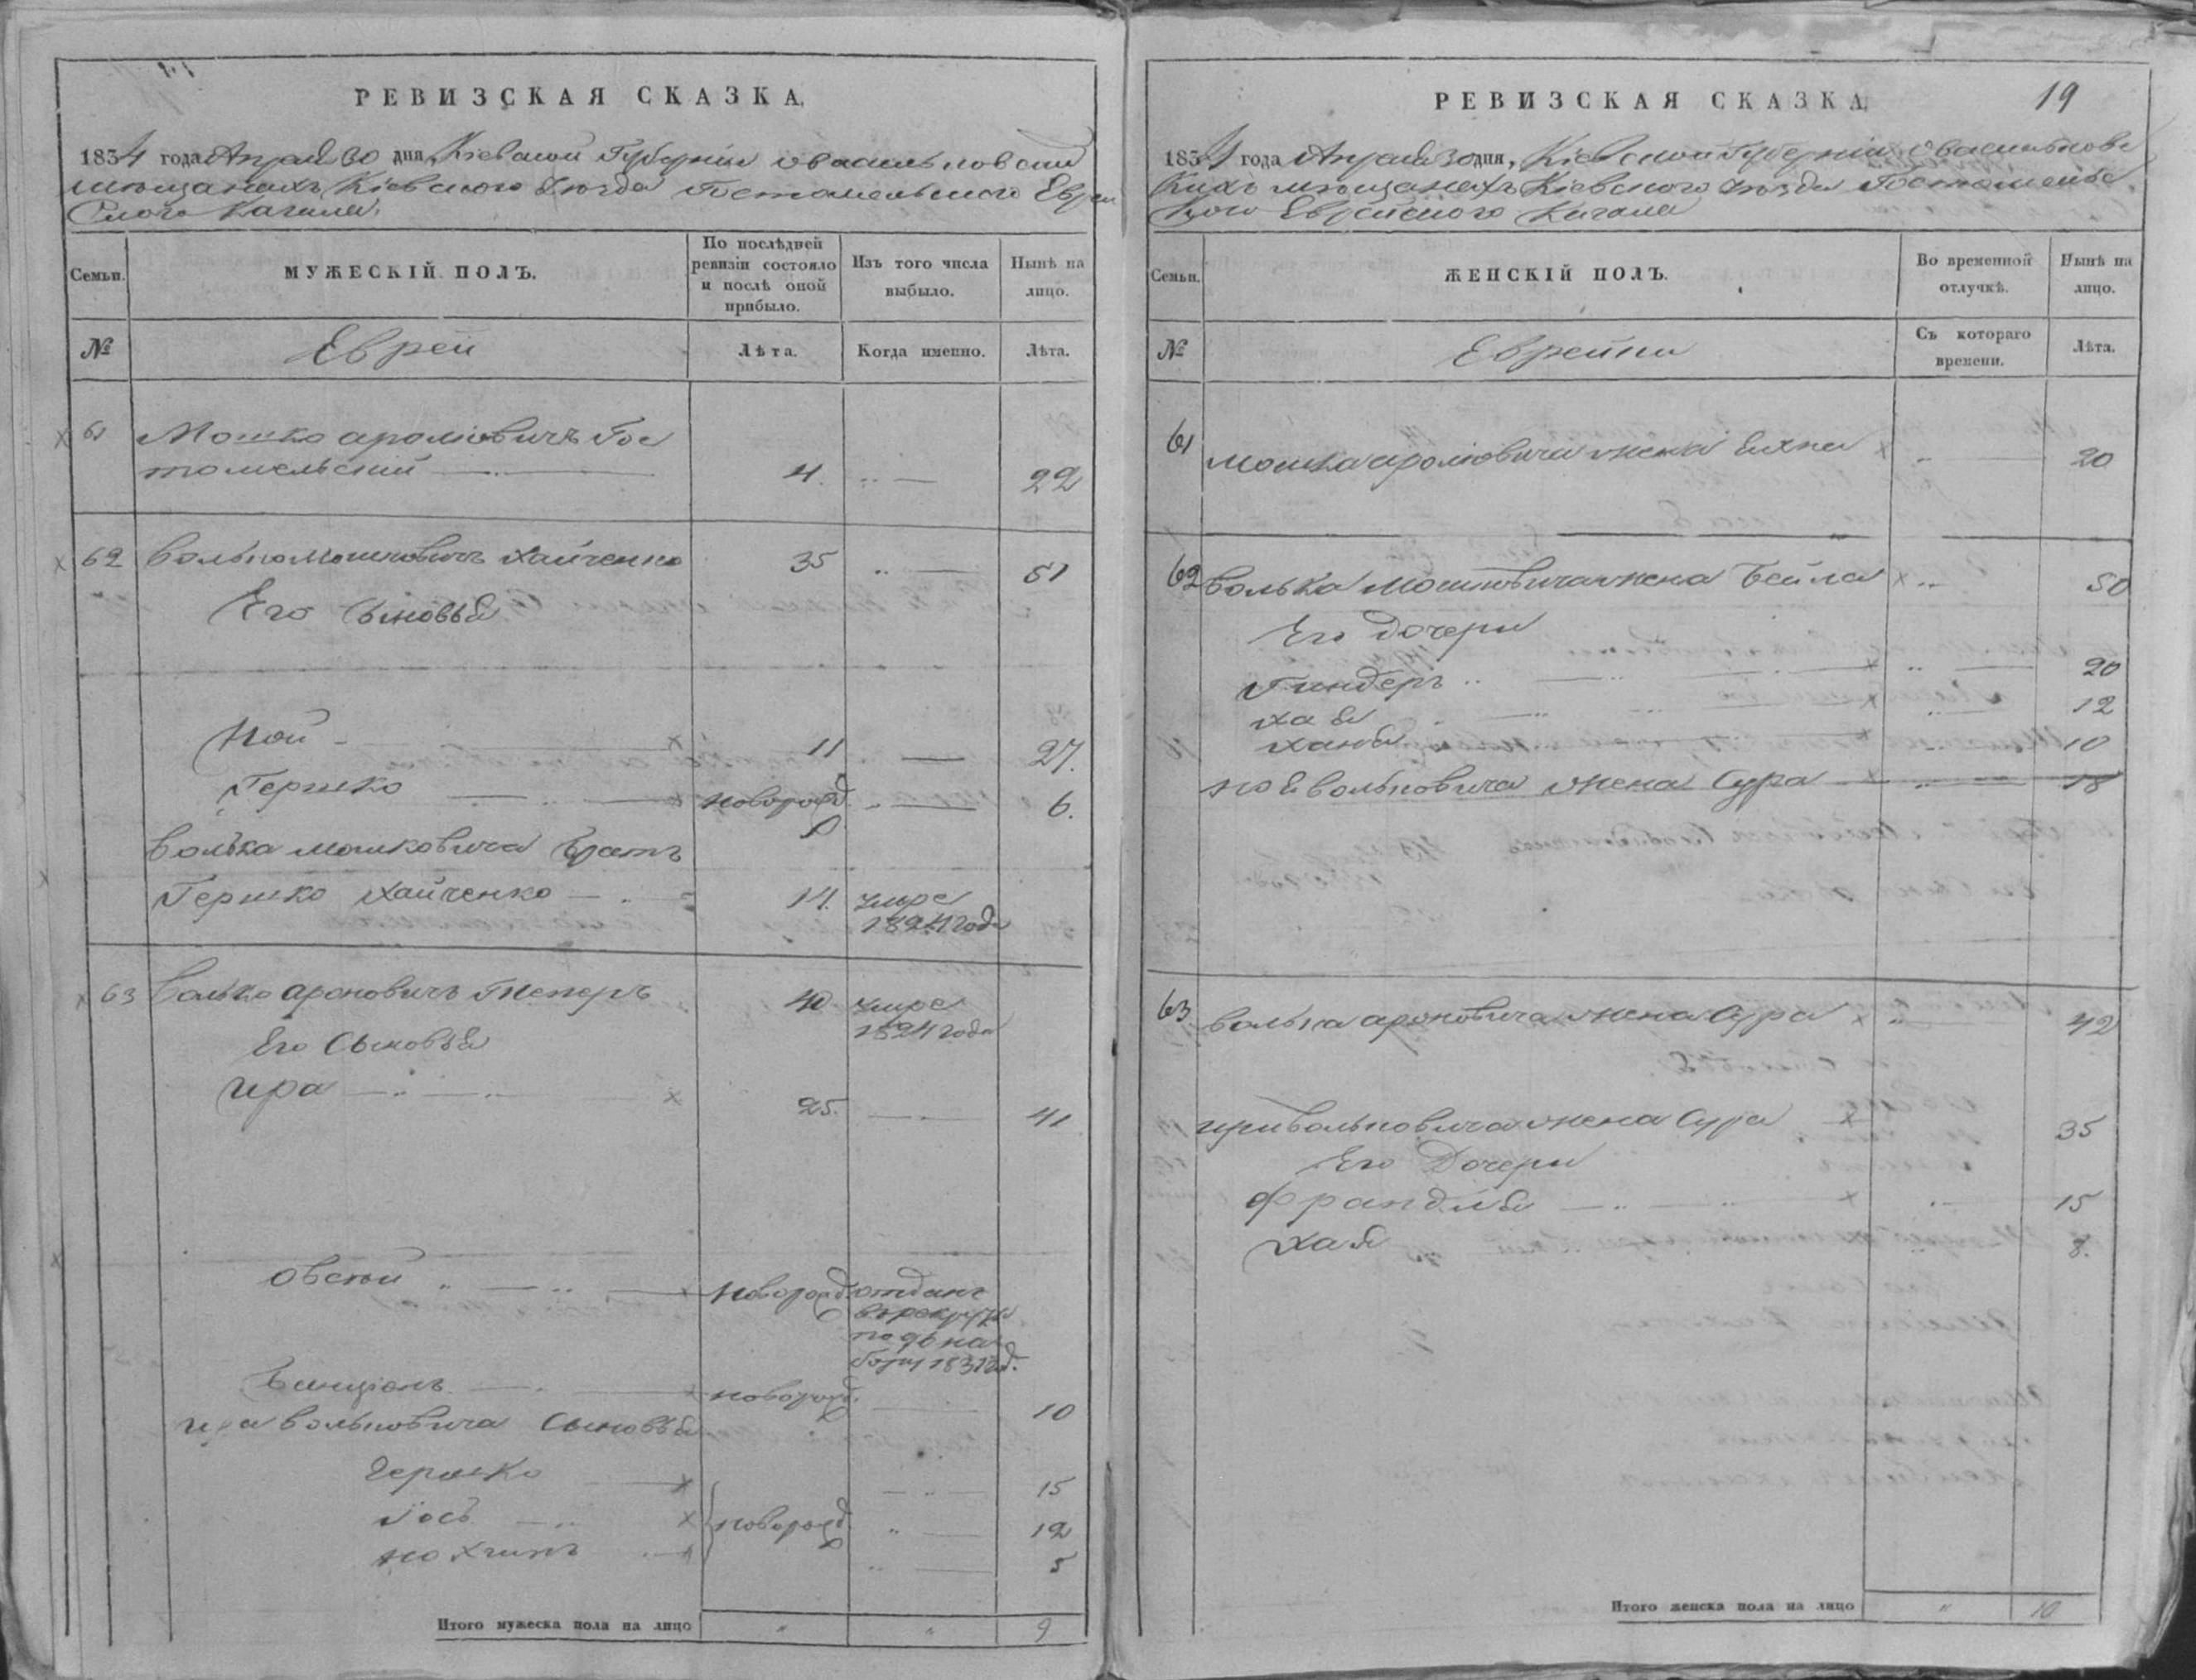 РЕВИЗСКАЯ СКАЗКА,
1834 года Апреля 30 дня, Кіевской Губерніи о васильковскихъ
мещанахъ Кіевского Уезда Гостомельского Еврей
ского Кагала.
Семьи.
МУЖЕСКІЙ ПОЛЪ.
По послѣдней ревизіи состояло и послѣ оной прибыло.
Изъ того числа выбыло.
Нынѣ на лицо.
№
Еврей
Лѣта.
Когда именно.
Лѣта.
61 Мошко ароновичъ Гос
томельский 4. 22
62 Волько Мошковичъ Хайченко 35 51
Его Сыновья
Ной 11 27.
Гершко новорожд 6.
Волька мошковича братъ
Гершко Хайченко 14. умре
1824 года
63 Волько ароновичъ Теперъ 40 умре
1824 года
Его Сыновья
Ира 25. 41
Овсей новорожд. отданъ
в рекруты
по 96 на
бору 1831 год.
Бенционъ новорожд. 10
Ира вольковича Сыновья
Гершко 15
Іось новорожд. 12
Нохимъ 5
Итого мужеска пола на лицо " " 9
РЕВИЗСКАЯ СКАЗКА, 19
1834 года Апреля 30 дня, Кіевской Губерніи о васильковс
кихъ мещанахъ Кіевского Уезда Гостомельс
кого Еврейского Кагала
Семьи.
ЖЕНСКІЙ ПОЛЪ.
Во временной отлучкѣ.
Нынѣ на лицо.
№
Еврейки
Съ котораго времени.
Лѣта.
61 Мошка ароновича жена Елхна 20
62 Волька Мошковича жена Бейла 50
Его Дочери
Гиндеръ 20
Хая 12
Ханя 10
Ноя вольковича жена Сура 18
63. Волька ароновича жена Сура 42
Ири вольковича жена Сура 35
Его Дочери
Франдля 15
Хая 8.
Итого женска пола на лицо " 10